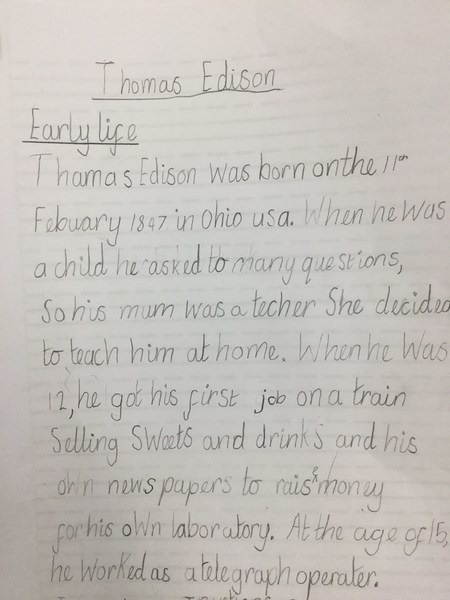 Thomas Edison
Early life
Thamas Edison was born on the 11th
Febuary 1847 in Ohio usa. When he was
a child he asked to many questions,
So his mum was a techer She decided
to teach him at home. When he was
12, he got his first job on a train
Selling Sweets and drinks and his
own news papers to raise money
for his own laboratory. At the age of 15,
he worked as a telegraph operater.